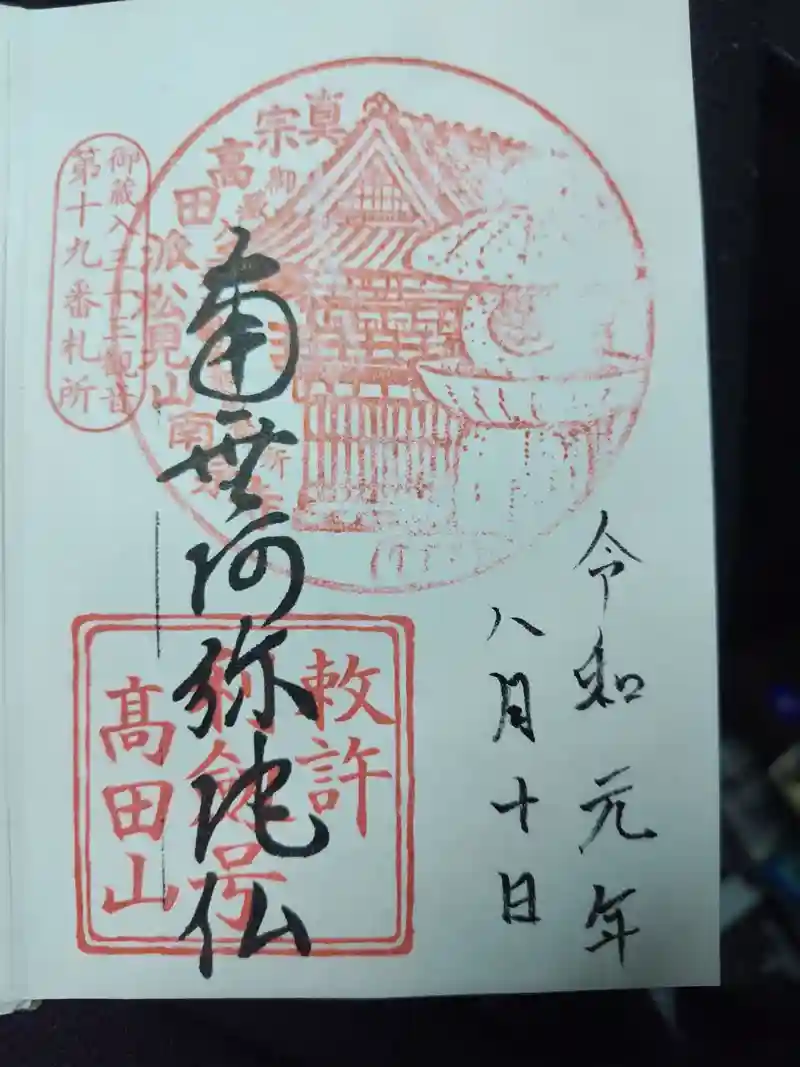 令和元年
八月十日
真宗高田派松見山南泉
南無阿弥陀仏
敕許
号
髙田山
御蔵入三十三観音
第十九番札所